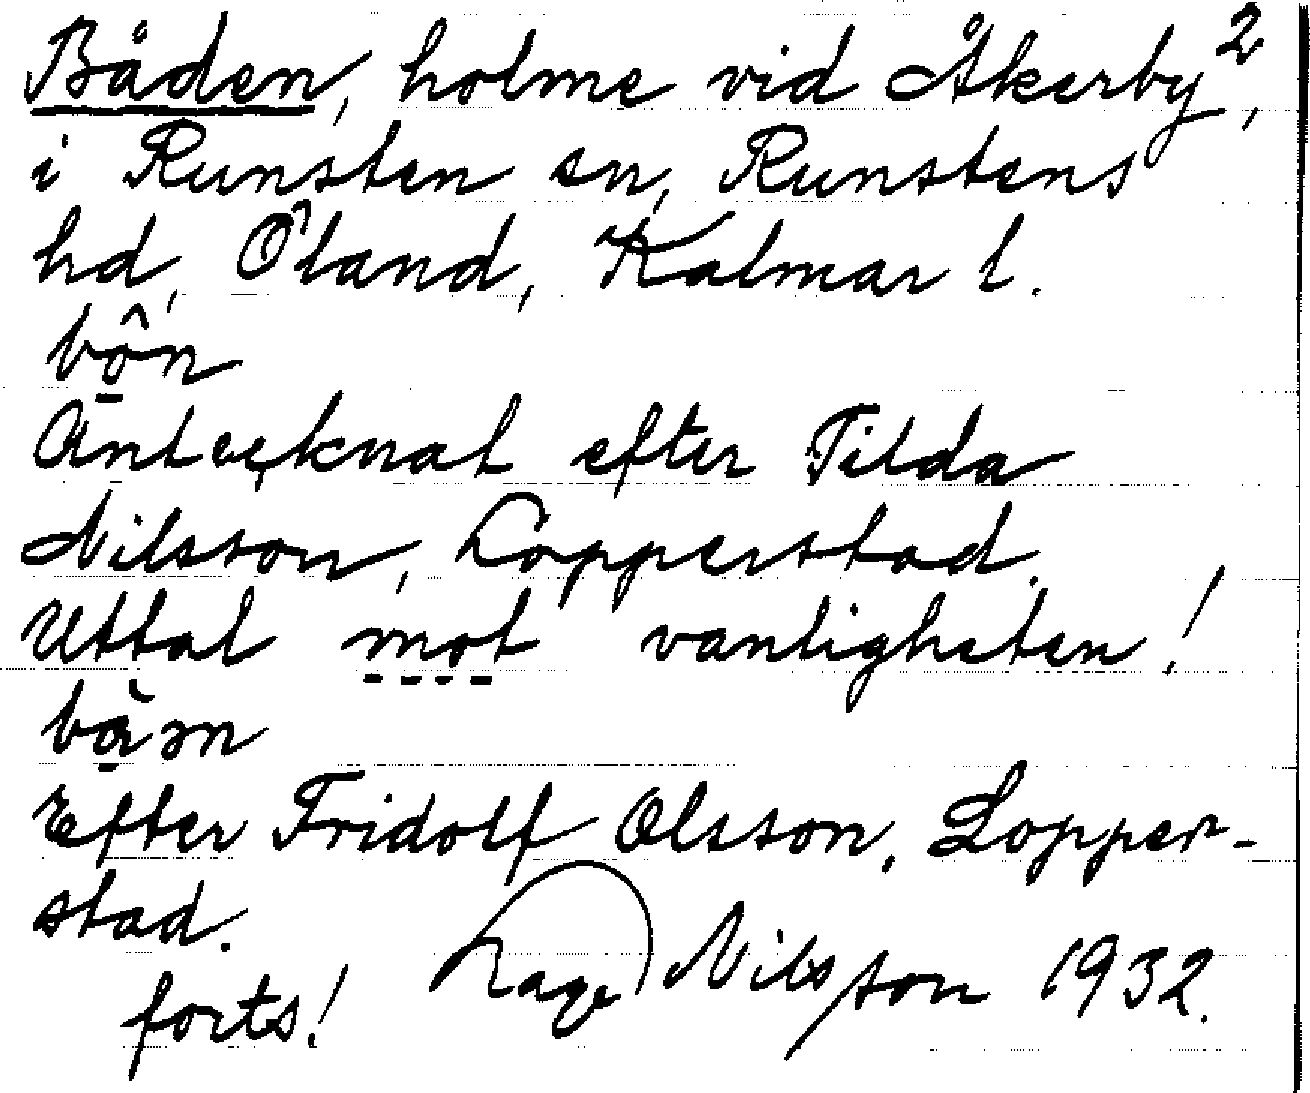 Båden, holme vid Åkerby²,
i Runsten sn, Runstens
hd, Öland, Kalmar l.
bô̱n
Antecknat efter Tilda
Nilsson, Lopperstad.
Uttal mot vanligheten!
bå̱̀ən
Efter Fridolf Olsson, Lopper-
stad.
forts! Lage Nilsson 1932.